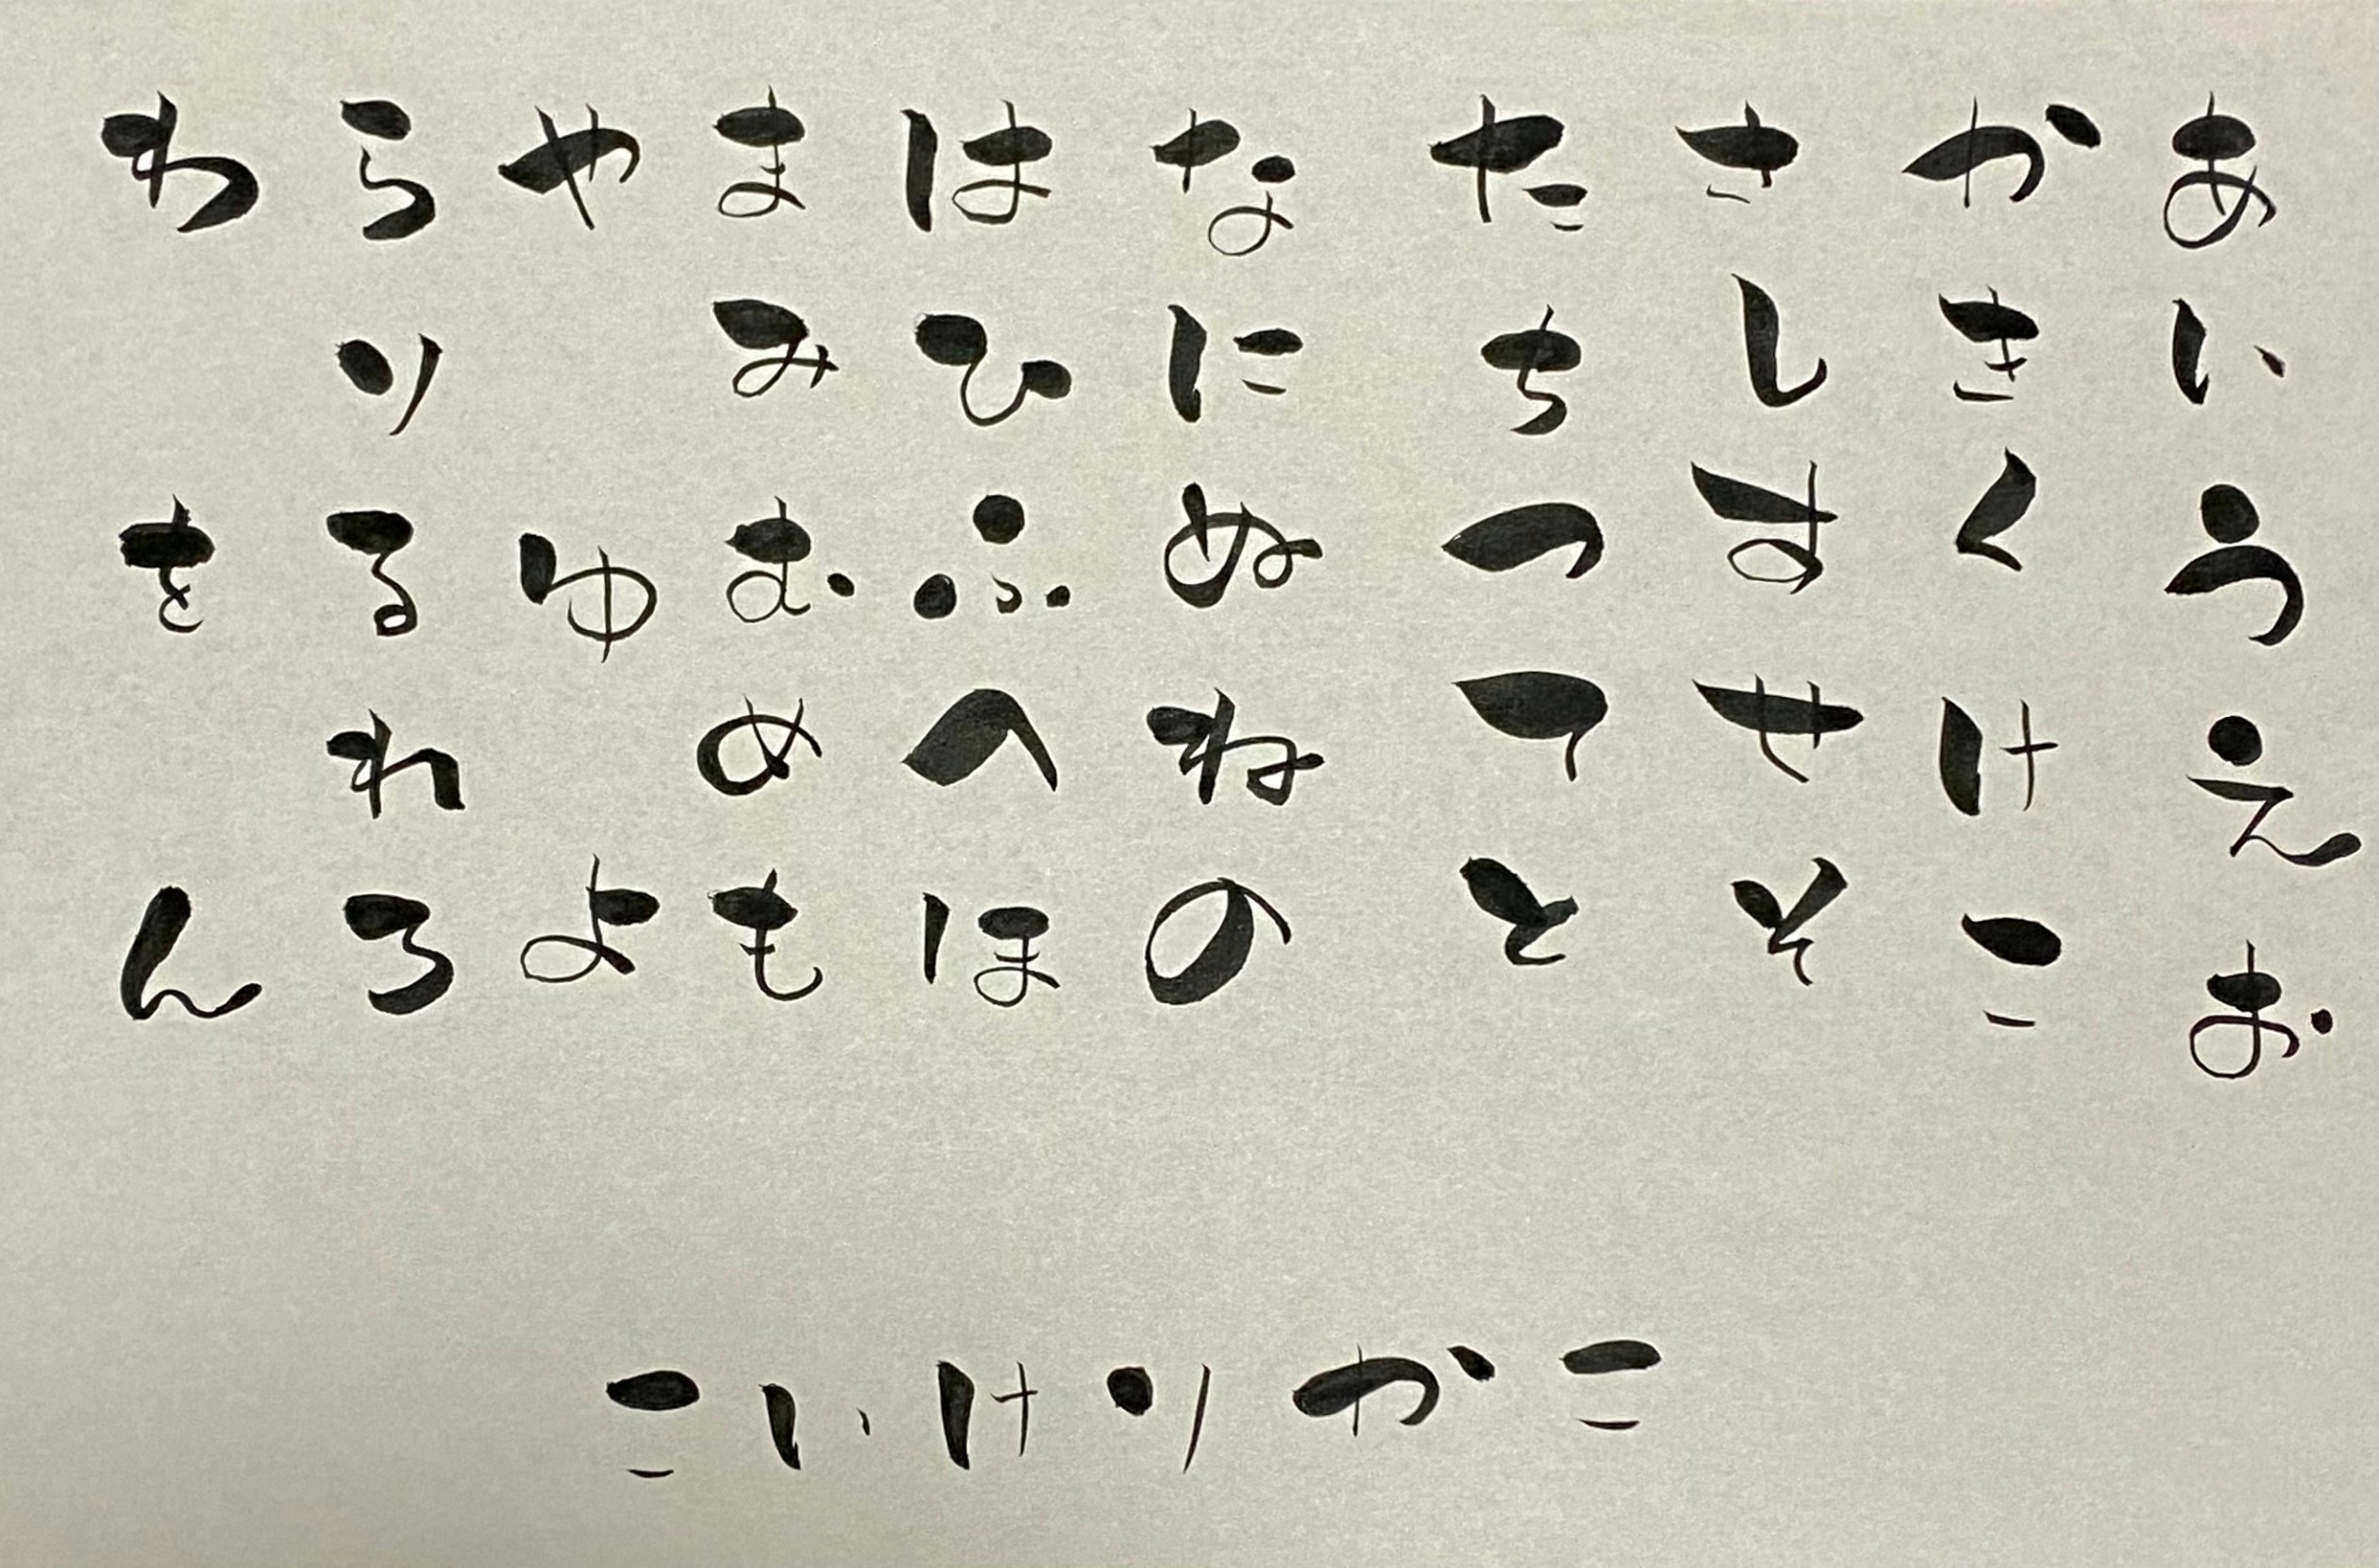 あいうえお
かきくけこ
さしすせそ
たちつてと
なにぬねの
はひふへほ
まみむめも
やゆよ
らりるれろ
わをん
こいけりかこ